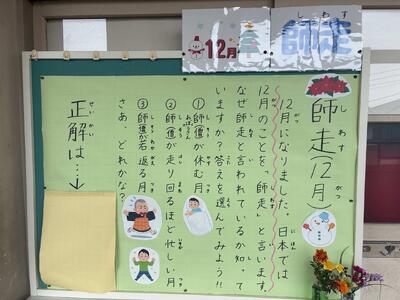 12月
師走
しわす
師走(12月)
しわす がつ
12月になりました。日本では
12月のことを、「師走」と言います。
なぜ師走と言われているか知って
いますか？答えを選んでみよう!!
①師僧が休む月
②師僧が走り回るほど忙しい月
③師僧が若返る月
さあ、どれかな？
正解は…→
せいかい